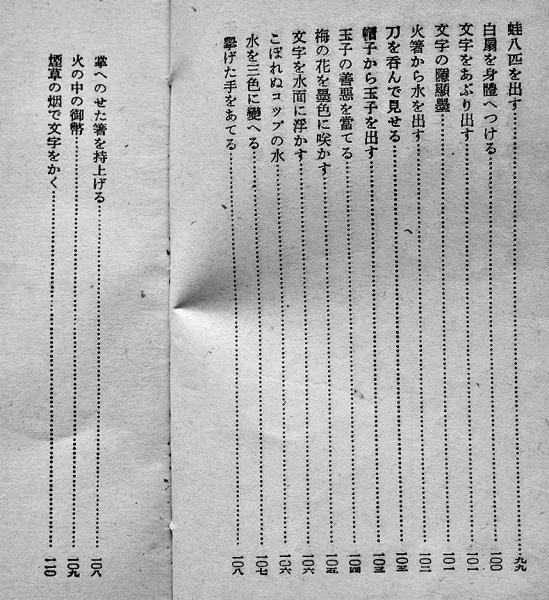 蛙八匹を出す……九九
白扇を身體へつける……一〇〇
文字をあぶり出す……一〇一
文字の隱顯墨……一〇一
火箸から水を出す……一〇二
刀を呑んで見せる……一〇三
帽子から玉子を出す……一〇三
玉子の善惡を當てる……一〇四
梅の花を墨色に咲かす……一〇五
文字を水面に浮かす……一〇六
こぼれぬコップの水……一〇六
水を三色に變へる……一〇七
擧げた手をあてる……一〇八
掌へのせた箸を持上げる……一〇八
火の中の御幣……一〇九
煙草の烟で文字をかく……一一〇